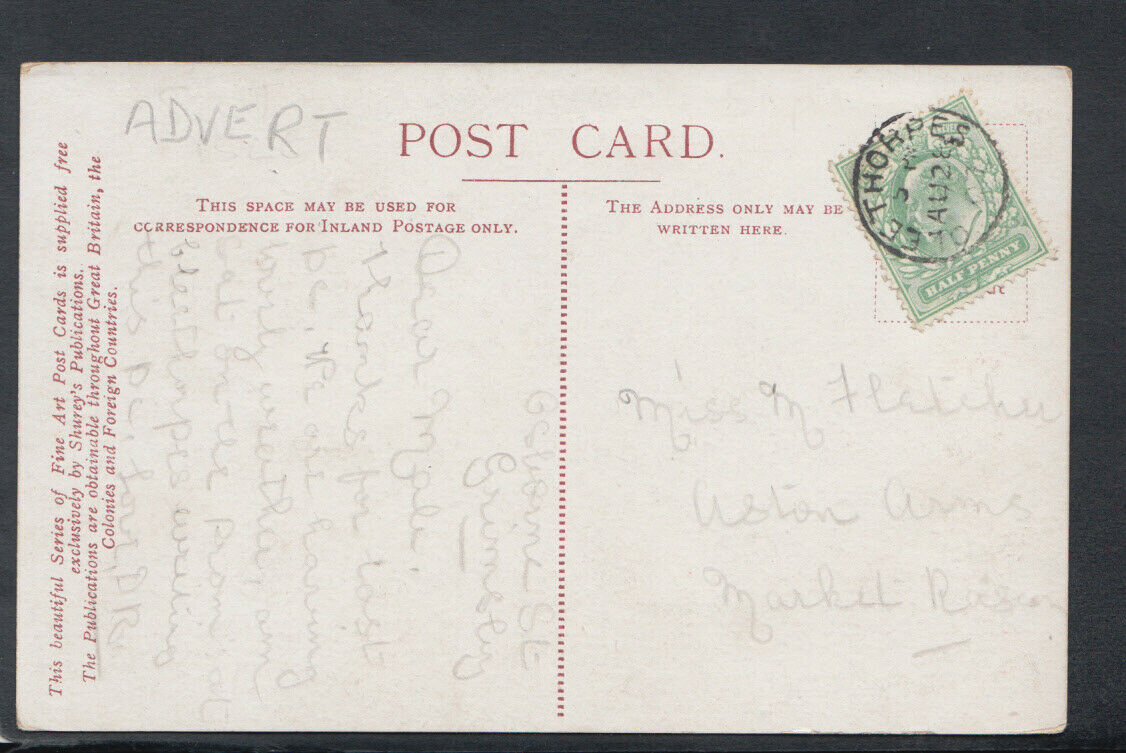 ADVERT
POST CARD.
This beautiful Series of Fine Art Post Cards is supplied free
exclusively by Shurey's Publications.
The Publications are obtainable throughout Great Britain, the
Colonies and Foreign Countries.
THIS SPACE MAY BE USED FOR
CORRESPONDENCE FOR INLAND POSTAGE ONLY.
THE ADDRESS ONLY MAY BE
WRITTEN HERE.
HALF PENNY
EETHORPES
AU 28
10
St
Grimsby
Dear
thanks for last
pc. We are having
weather, am
on the prom at
Cleethorpes
this pc.
Miss M Flatcher
Aston Arms
Market Rasen